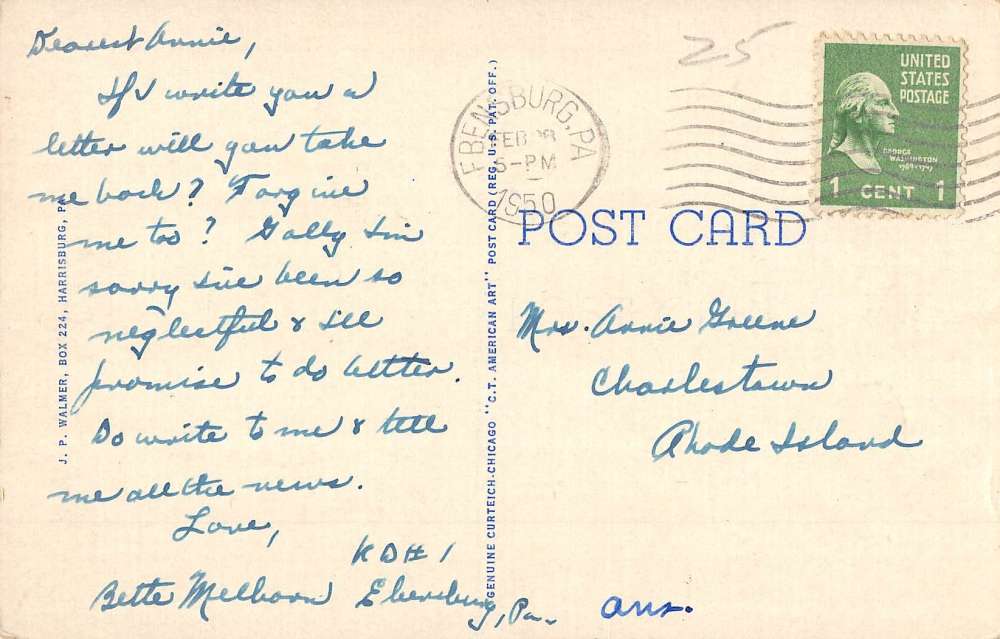 Dearest Annie,
If I write you a
letter will you take
me back? Forgive
me too? Golly I'm
sorry I've been so
neglectful & I'll
promise to do better.
Do write to me & tell
me all the news.
Love,
Bette Melhorn
RD# 1
Ebensburg, Pa.
ans.
J. P. WALMER, BOX 224, HARRISBURG, PA.
GENUINE CURTEICH-CHICAGO "C.T. AMERICAN ART" POST CARD (REG. U.S. PAT. OFF.)
25
EBENSBURG, PA
FEB
5-PM
1950
UNITED
STATES
POSTAGE
GEORGE
WASHINGTON
1789-1797
1 CENT 1
POST CARD
Mrs. Annie Greene
Charlestown
Rhode Island